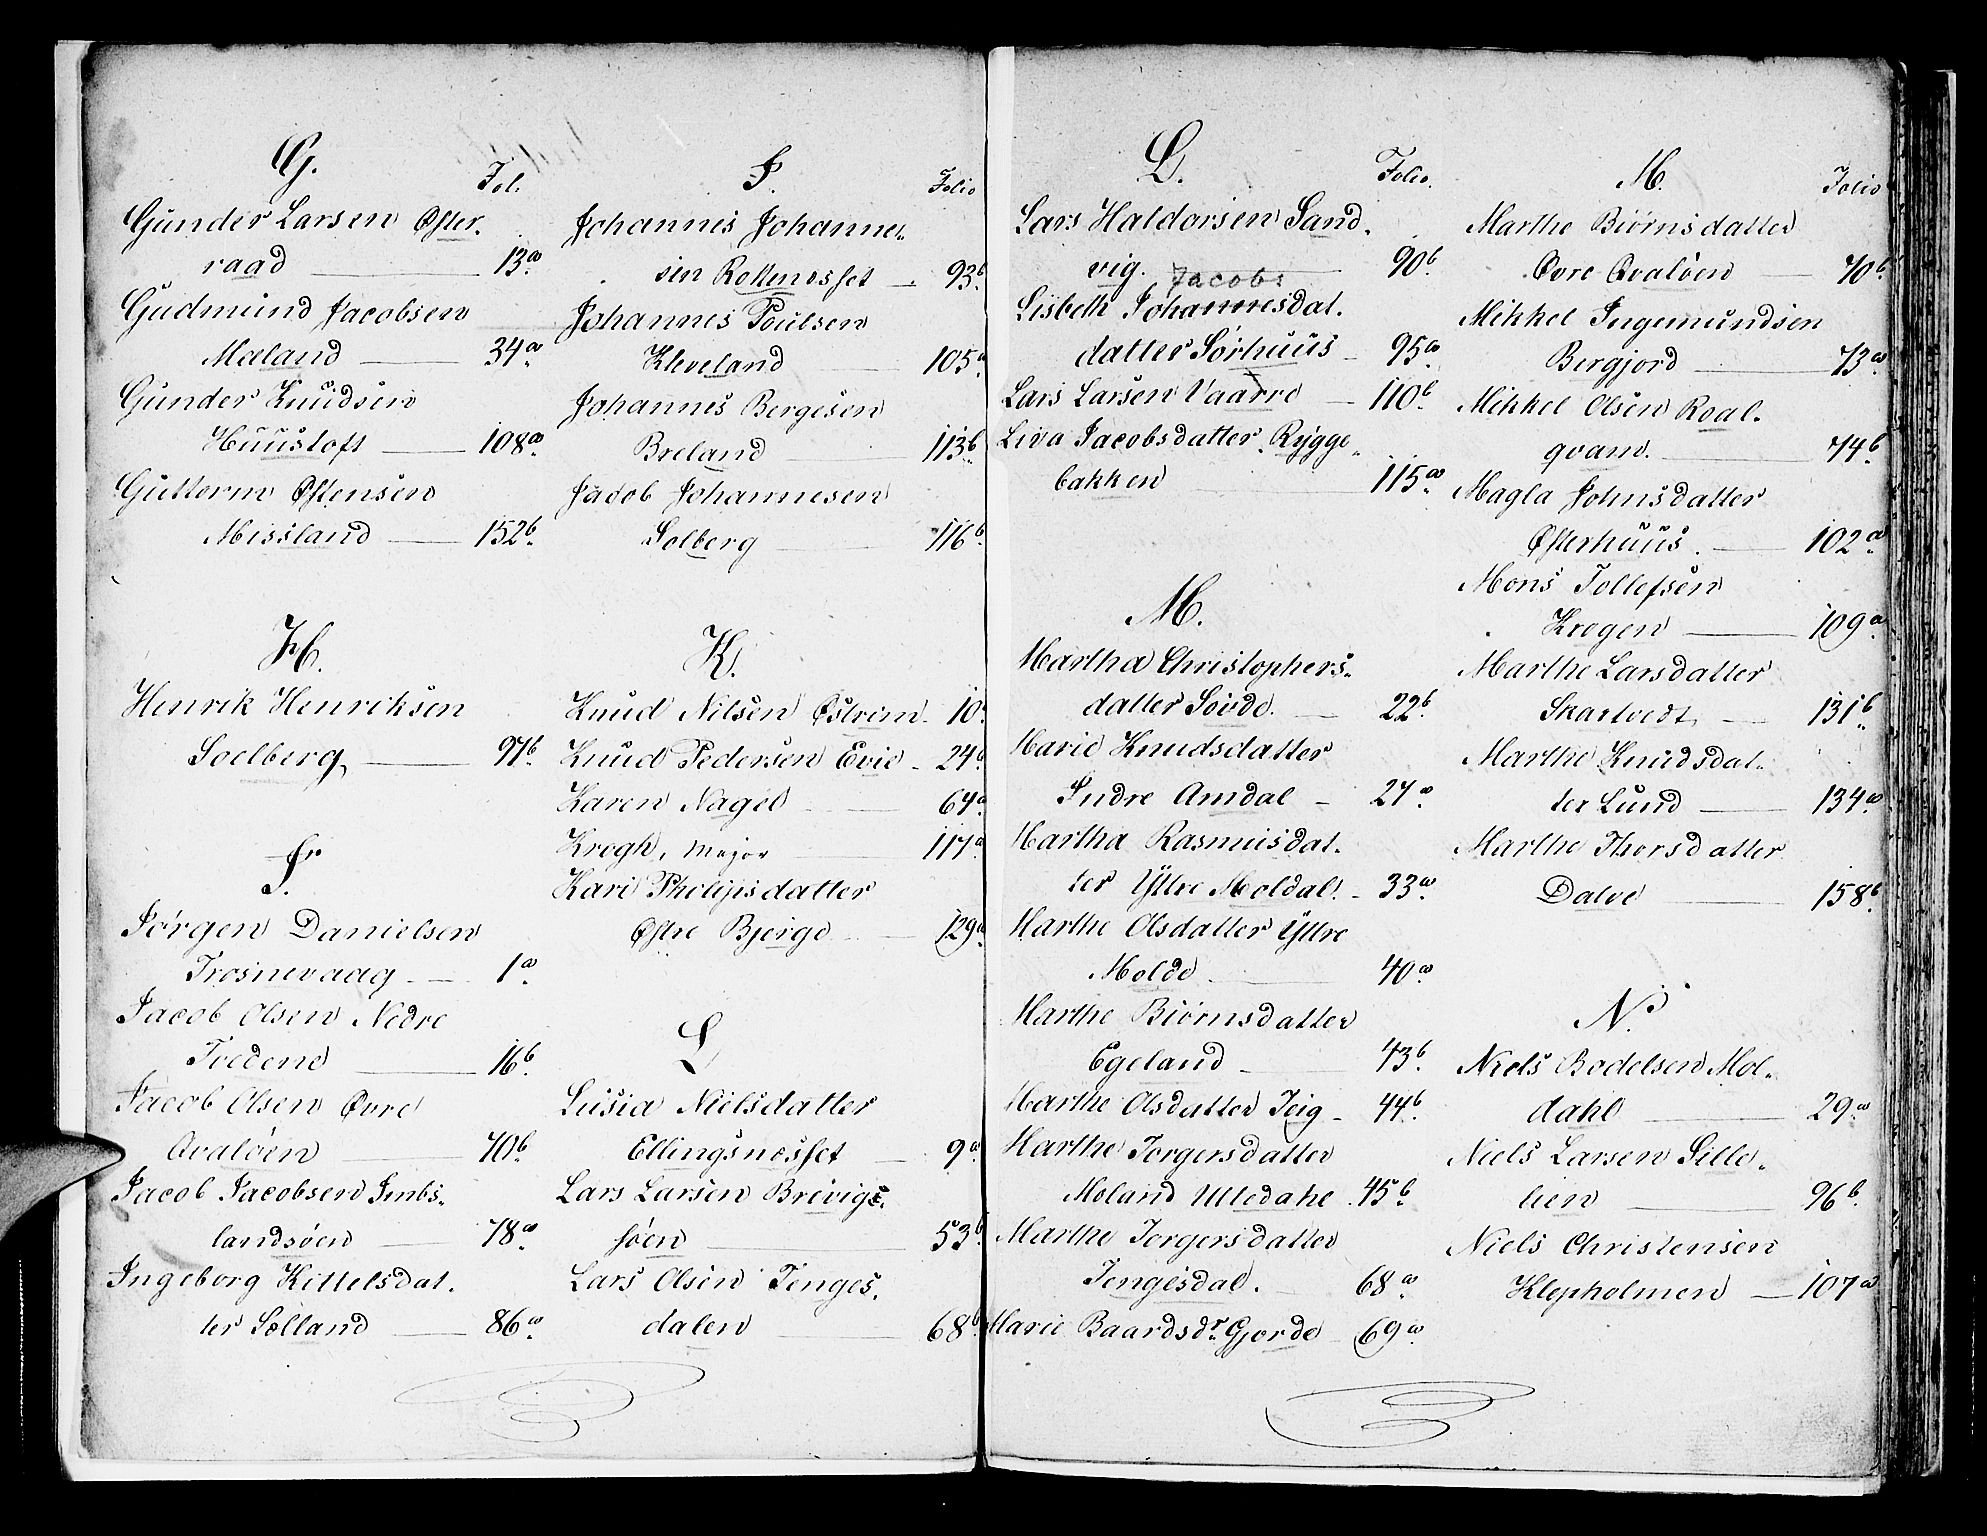 G.
Fol.
Gunder Larsen Øster-
raad 13a.
Gudmund Jacobsen
Mæland 34a.
Gunder Knudsen
Huustoft 108a.
Guttorm Østensen
Missland 152b.
H.
Henrik Henriksen
Soelberg, 97b.
J.
Jørgen Danielsen
Trosnevaag 1a.
Jacob Olsen Nedre
Tvedene 16b.
Jacob Olsen Øvre
Qvaløen 70b.
Jacob Jacobsen Imbs-
landsøen 78a.
Ingeborg Kittelsdat-
ter Sølland 86a.
J.
Folio
Johannes Johanne-
sen 93b.
Johannes Poulsen
Kleveland 105a.
Johannes Bergesen
Breland 113b.
Jacob Johannesen
Solberg 116b.
K.
Knud Nilsen Østrim 10.
Knud Pedersen Evie 24b
Karen Nagel 64a
Krogh, Major 117a
Kari Philipsdatter
Østre Bjerge 129a.
L
Lusia Nielsdatter
Ellingsnæsset 9a
Lars Larsen Brevigs-
søen 53b.
Lars Olsen Tenges-
dalen 68b.
L.
Folio.
Lars Haldorsen Sand-
vig. 90b.
Jacobs
Lisbeth Johannesdat-
datter Sørhuus 95a.
Lars Larsen Vaarre 110b.
Liva Jacobsdatter Rygge-
bakken 115a.
M.
Martha Christophers-
datter Søvde. 22b.
Marie Knudsdatter
Indre Amdal 27a.
Martha Rasmusdat-
ter Yttre Moldal. 33a.
Marthe Olsdatter Yttre
Molde 40a.
Marthe Biørnsdatter
Egeland 43b.
Marthe Olsdatter Teig 44b.
Marthe Torgersdatter
Moland Utledahl 45b.
Marthe Torgersdatter
Tengesdal. 68a.
Marie Baardsdr. Gjorde 69a.
M.
Folio
Marthe Biørnsdatter
Øvre Qvaløen 70b.
Mikkel Ingemundsen
Bergjord 73a.
Mikkel Olsen Roal-
qvam. 74b.
Magla Johnsdatter
Østerhuus. 102a.
Mons Tollefsen
Krogen 109a.
Marthe Larsdatter
Skartvedt 131b.
Marthe Knudsdat-
ter Lund 134a.
Marthe Thorsdatter
Dalve 158b.
N.
Niels Bodelsen Mol-
dahl 29a.
Niels Larsen Lille-
lien 96b.
Niels Christensen
Klepholmen 107a